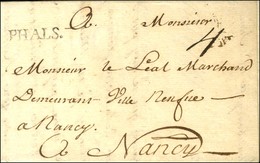 A Monsieur
PHALS.
4
Monsieur le Léal Marchand
Demeurant Ville Neufve
a Nancy.
A Nancy